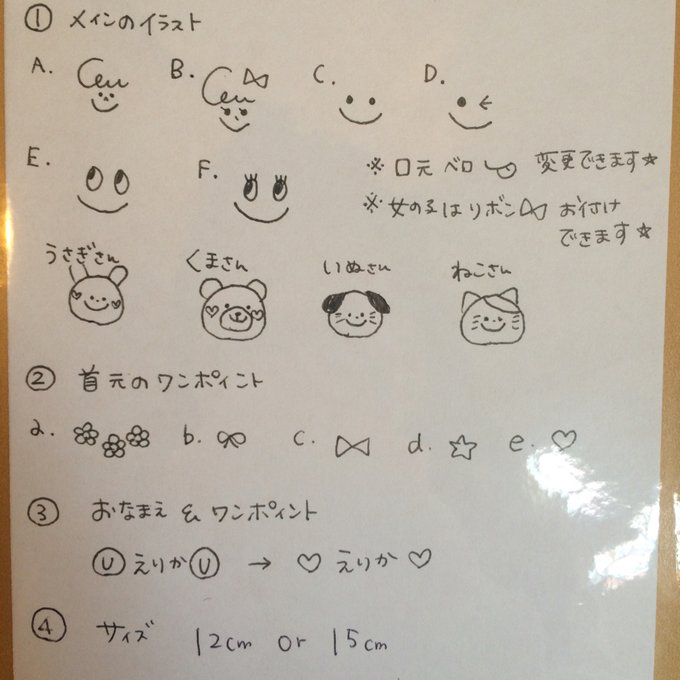 ① メインのイラスト
A. B. C. D.
E. F. ※口元 ベロ 変更できます☆
※女の子はリボン お付け
できます☆
うさぎさん くまさん いぬさん ねこさん
② 首元のワンポイント
a. b. c. d. e.
③ おなまえ & ワンポイント
Ⓤ えりか Ⓤ → ♡ えりか ♡
④ サイズ 12cm or 15cm